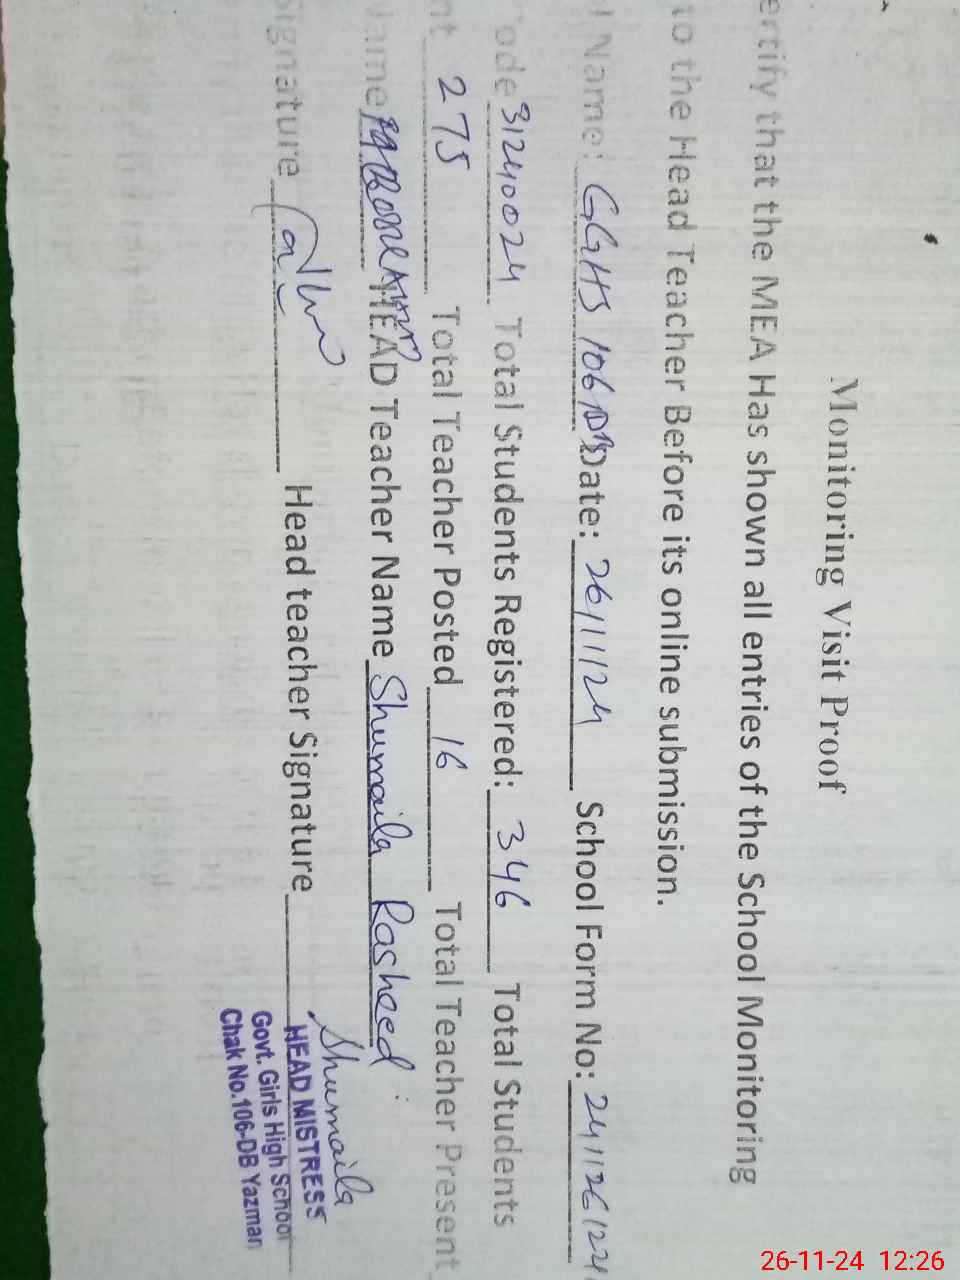 Monitoring Visit Proof
ertify that the MEA Has shown all entries of the School Monitoring
to the Head Teacher Before its online submission.
l Name: GGHS 106/DB Date: 26/11/24 School Form No:
ode 31240024 Total Students Registered: 346 Total Students
nt 275 Total Teacher Posted 16 Total Teacher Present
Name HEAD Teacher Name Shumaila Rasheed
ignature Head teacher Signature Shumaila
HEAD MISTRESS
Govt. Girls High School
Chak No.106-DB Yazman
26-11-24 12:26